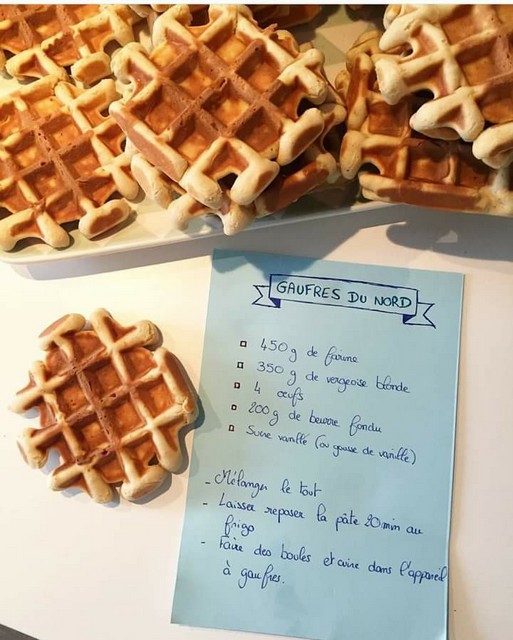 GAUFRES DU NORD
450g de farine
350 g de vergeoise blonde
4 œufs
200g de beurre fondu
Sucre vanillé (ou gousse de vanille)
- Mélanger le tout
- Laisser reposer la pâte 20min au
frigo
- Faire des boules et cuire dans l'appareil
à gaufres.